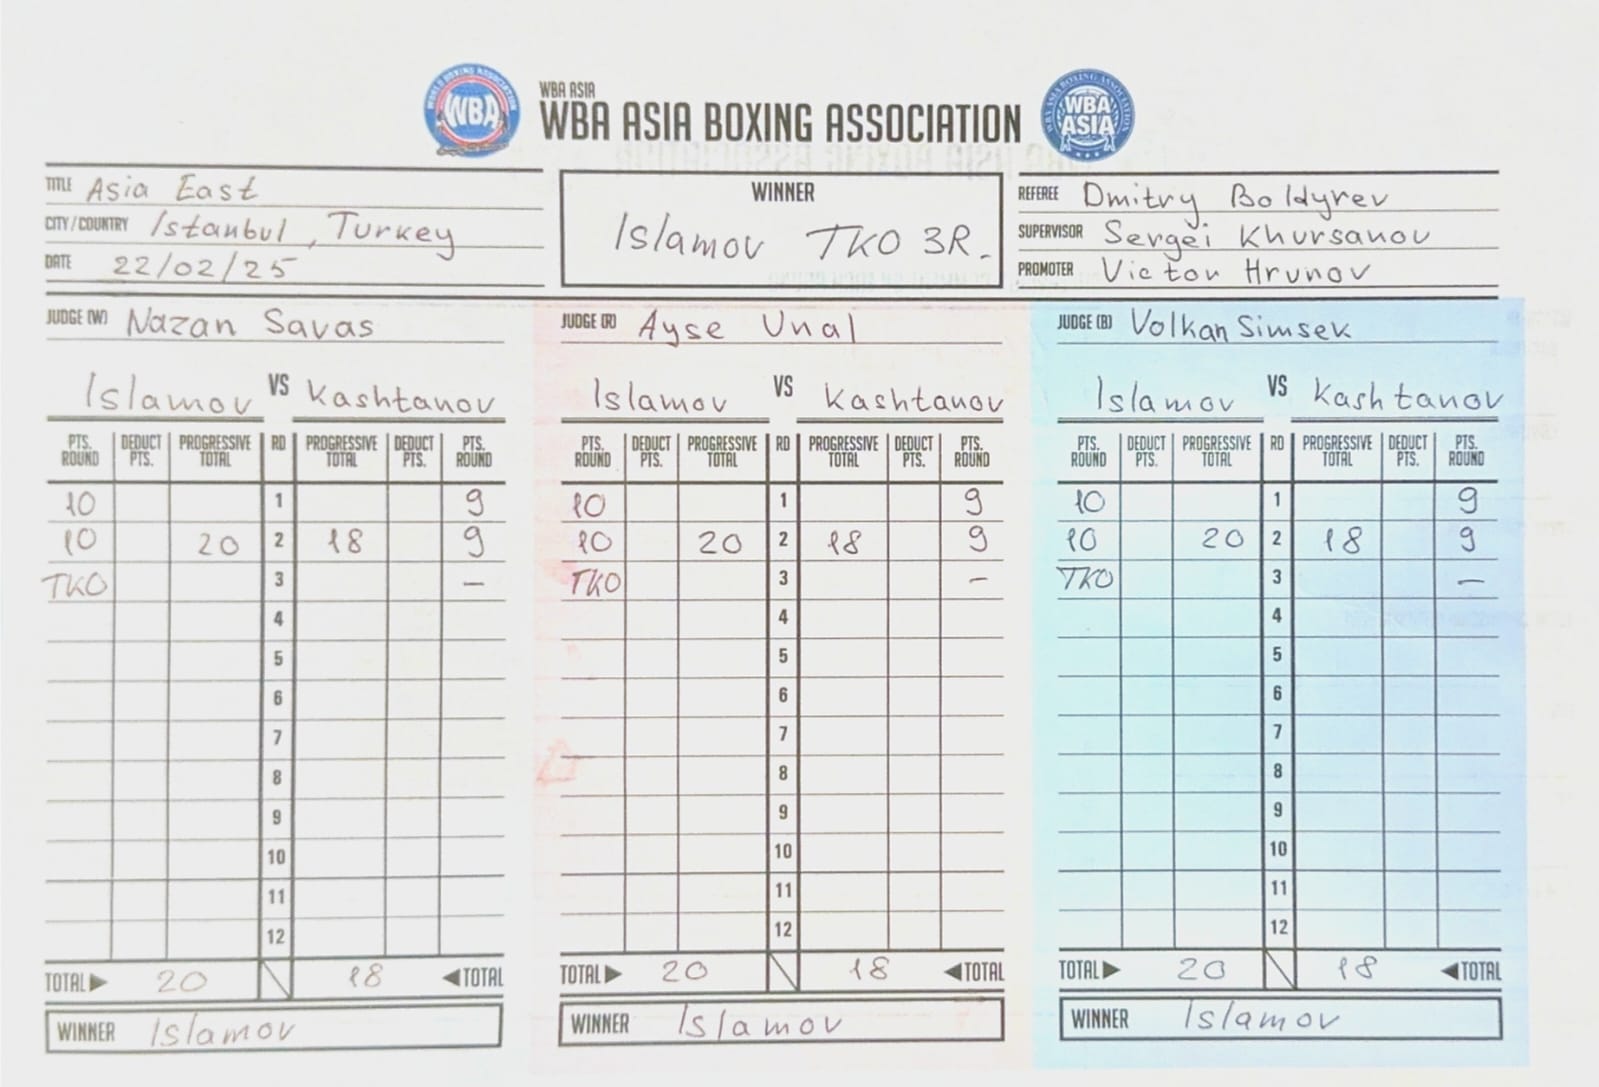 WBA ASIA
WBA ASIA BOXING ASSOCIATION
WORLD BOXING ASSOCIATION
WBA
WBA ASIA BOXING ASSOCIATION
WBA
ASIA
TITLE Asia East
CITY/COUNTRY Istanbul, Turkey
DATE 22/02/25
WINNER
Islamov TKO 3R.
REFEREE Dmitry Boldyrev
SUPERVISOR Sergei Khursanov
PROMOTER Victor Hrunov
JUDGE (W) Nazan Savas
Islamov VS Kashtanov
PTS. ROUND DEDUCT PTS. PROGRESSIVE TOTAL RD PROGRESSIVE TOTAL DEDUCT PTS. PTS. ROUND
10 1 9
10 20 2 18 9
TKO 3 –
4
5
6
7
8
9
10
11
12
TOTAL 20 18 TOTAL
WINNER Islamov
JUDGE (R) Ayse Unal
Islamov VS Kashtanov
PTS. ROUND DEDUCT PTS. PROGRESSIVE TOTAL RD PROGRESSIVE TOTAL DEDUCT PTS. PTS. ROUND
10 1 9
10 20 2 18 9
TKO 3 –
4
5
6
7
8
9
10
11
12
TOTAL 20 18 TOTAL
WINNER Islamov
JUDGE (B) Volkan Simsek
Islamov VS Kashtanov
PTS. ROUND DEDUCT PTS. PROGRESSIVE TOTAL RD PROGRESSIVE TOTAL DEDUCT PTS. PTS. ROUND
10 1 9
10 20 2 18 9
TKO 3 –
4
5
6
7
8
9
10
11
12
TOTAL 20 18 TOTAL
WINNER Islamov